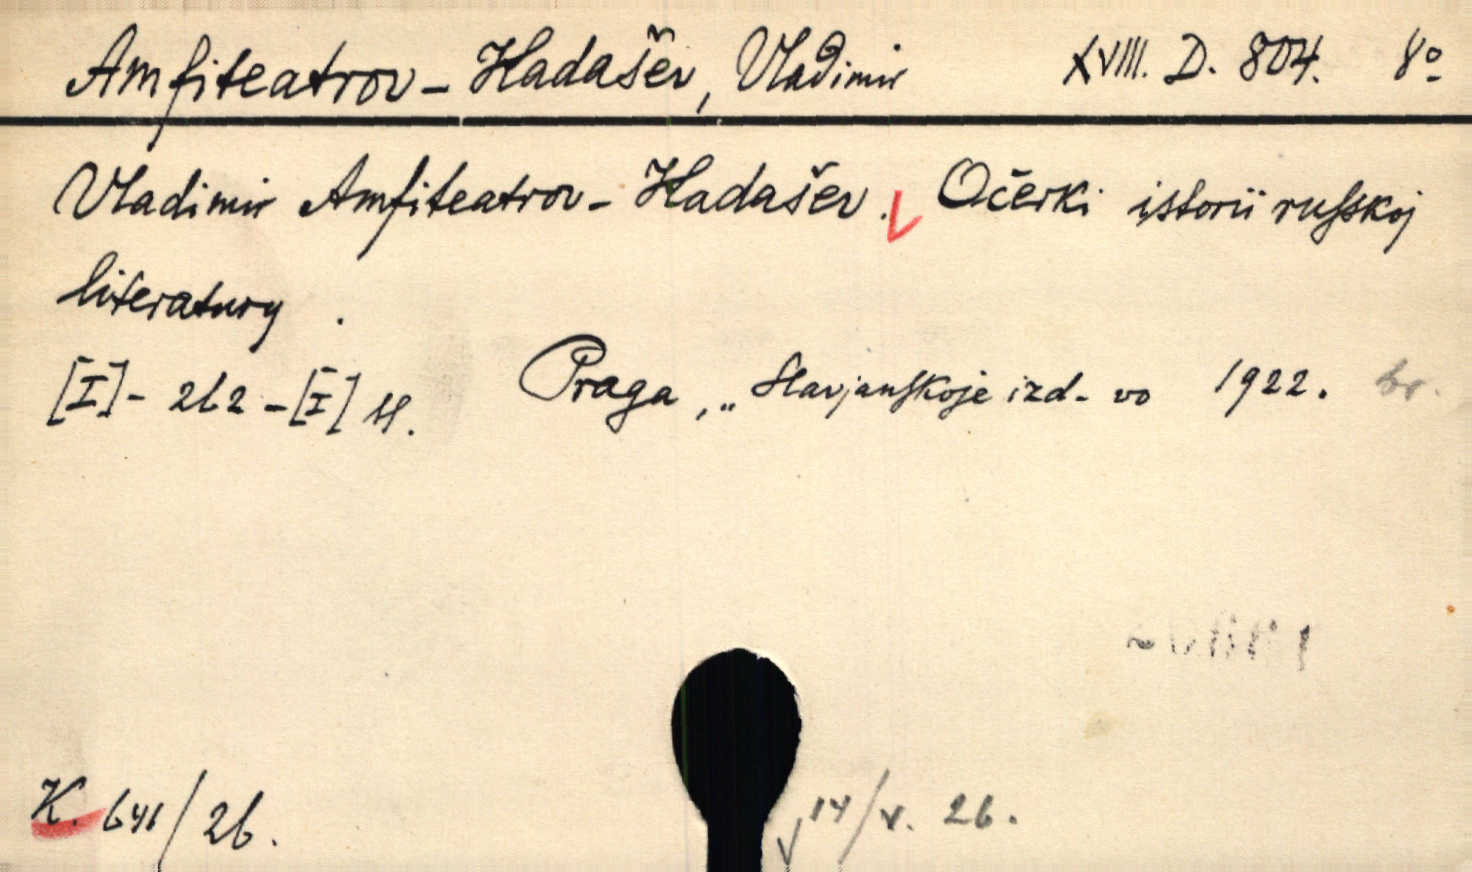 Amfiteatrov-Hadašev, Vladimir XVIII. D. 804. 8º
Vladimir Amfiteatrov-Hadašev. Očerki istorii russkoj
literatury.
[I]-262-[I] Praga, „Slavjanskoje izd-vo 1922. br.
K. 641/26. 14/V. 26.